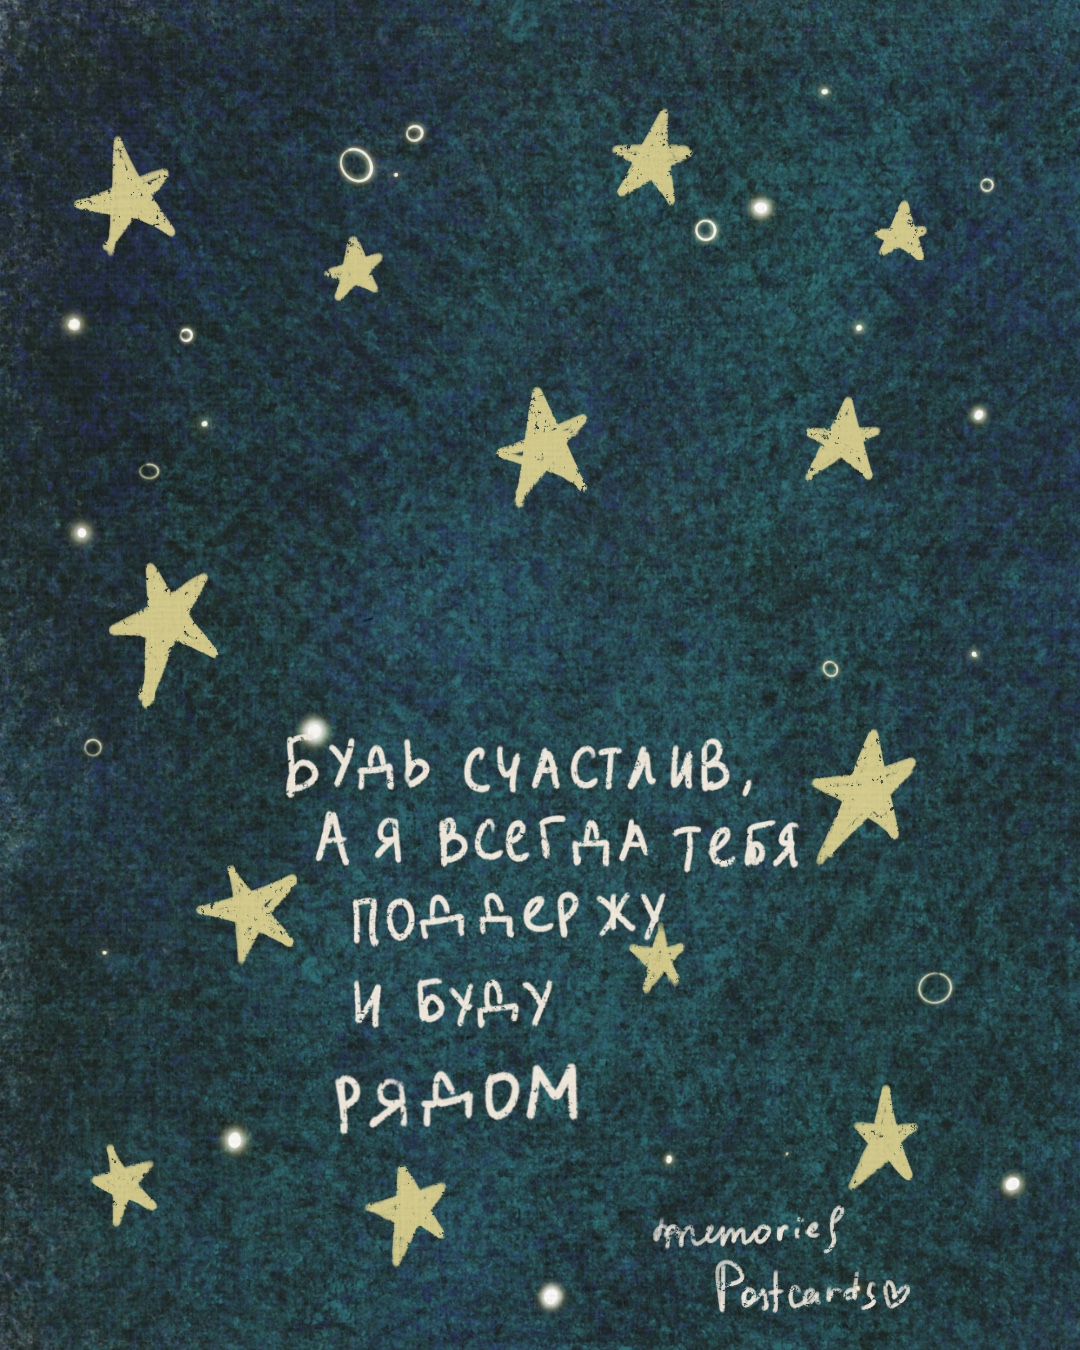 Будь счастлив,
а я всегда тебя
поддержу
и буду
рядом
memories
Postcards♡